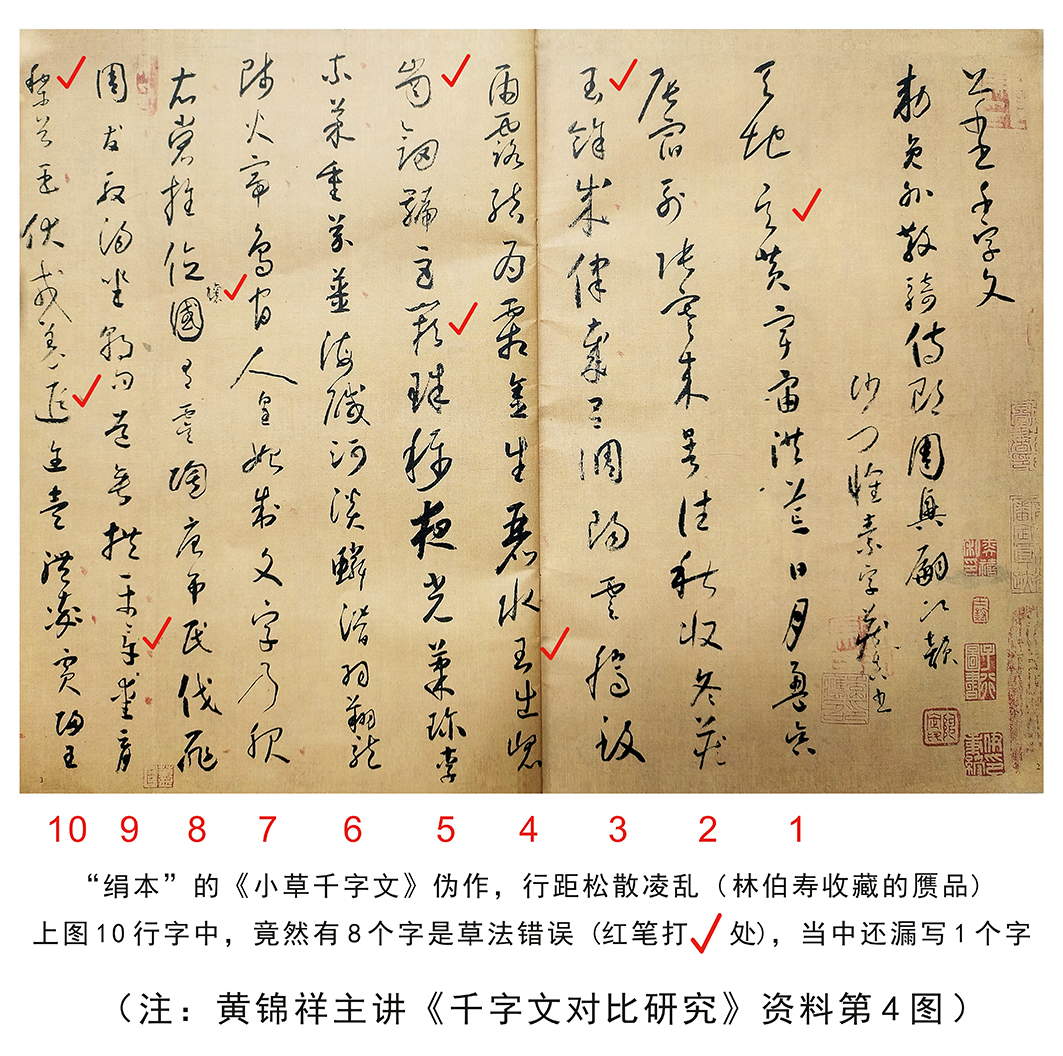 千字文
勅員外散騎侍郎周興嗣次韻
沙門懷素字藏真書
天地玄黃宇宙洪荒日月盈昃
辰宿列張寒來暑往秋收冬藏
閏餘成律歲呂調陽雲騰致
雨露結為霜金生麗水玉出崐
崗劍號巨闕珠稱夜光菓珍李
柰菜重芥薑海鹹河淡鱗潛羽翔龍
師火帝鳥官人皇始制文字乃服
衣裳推位讓國有虞陶唐弔民伐罪
周發殷湯坐朝問道垂拱平章愛育
黎首臣伏戎羌遐迩壹體率賓歸王
10 9 8 7 6 5 4 3 2 1
“绢本”的《小草千字文》伪作，行距松散凌乱（林伯寿收藏的赝品）
上图10行字中，竟然有8个字是草法错误（红笔打✓处），当中还漏写1个字
（注：黄锦祥主讲《千字文对比研究》资料第4图）